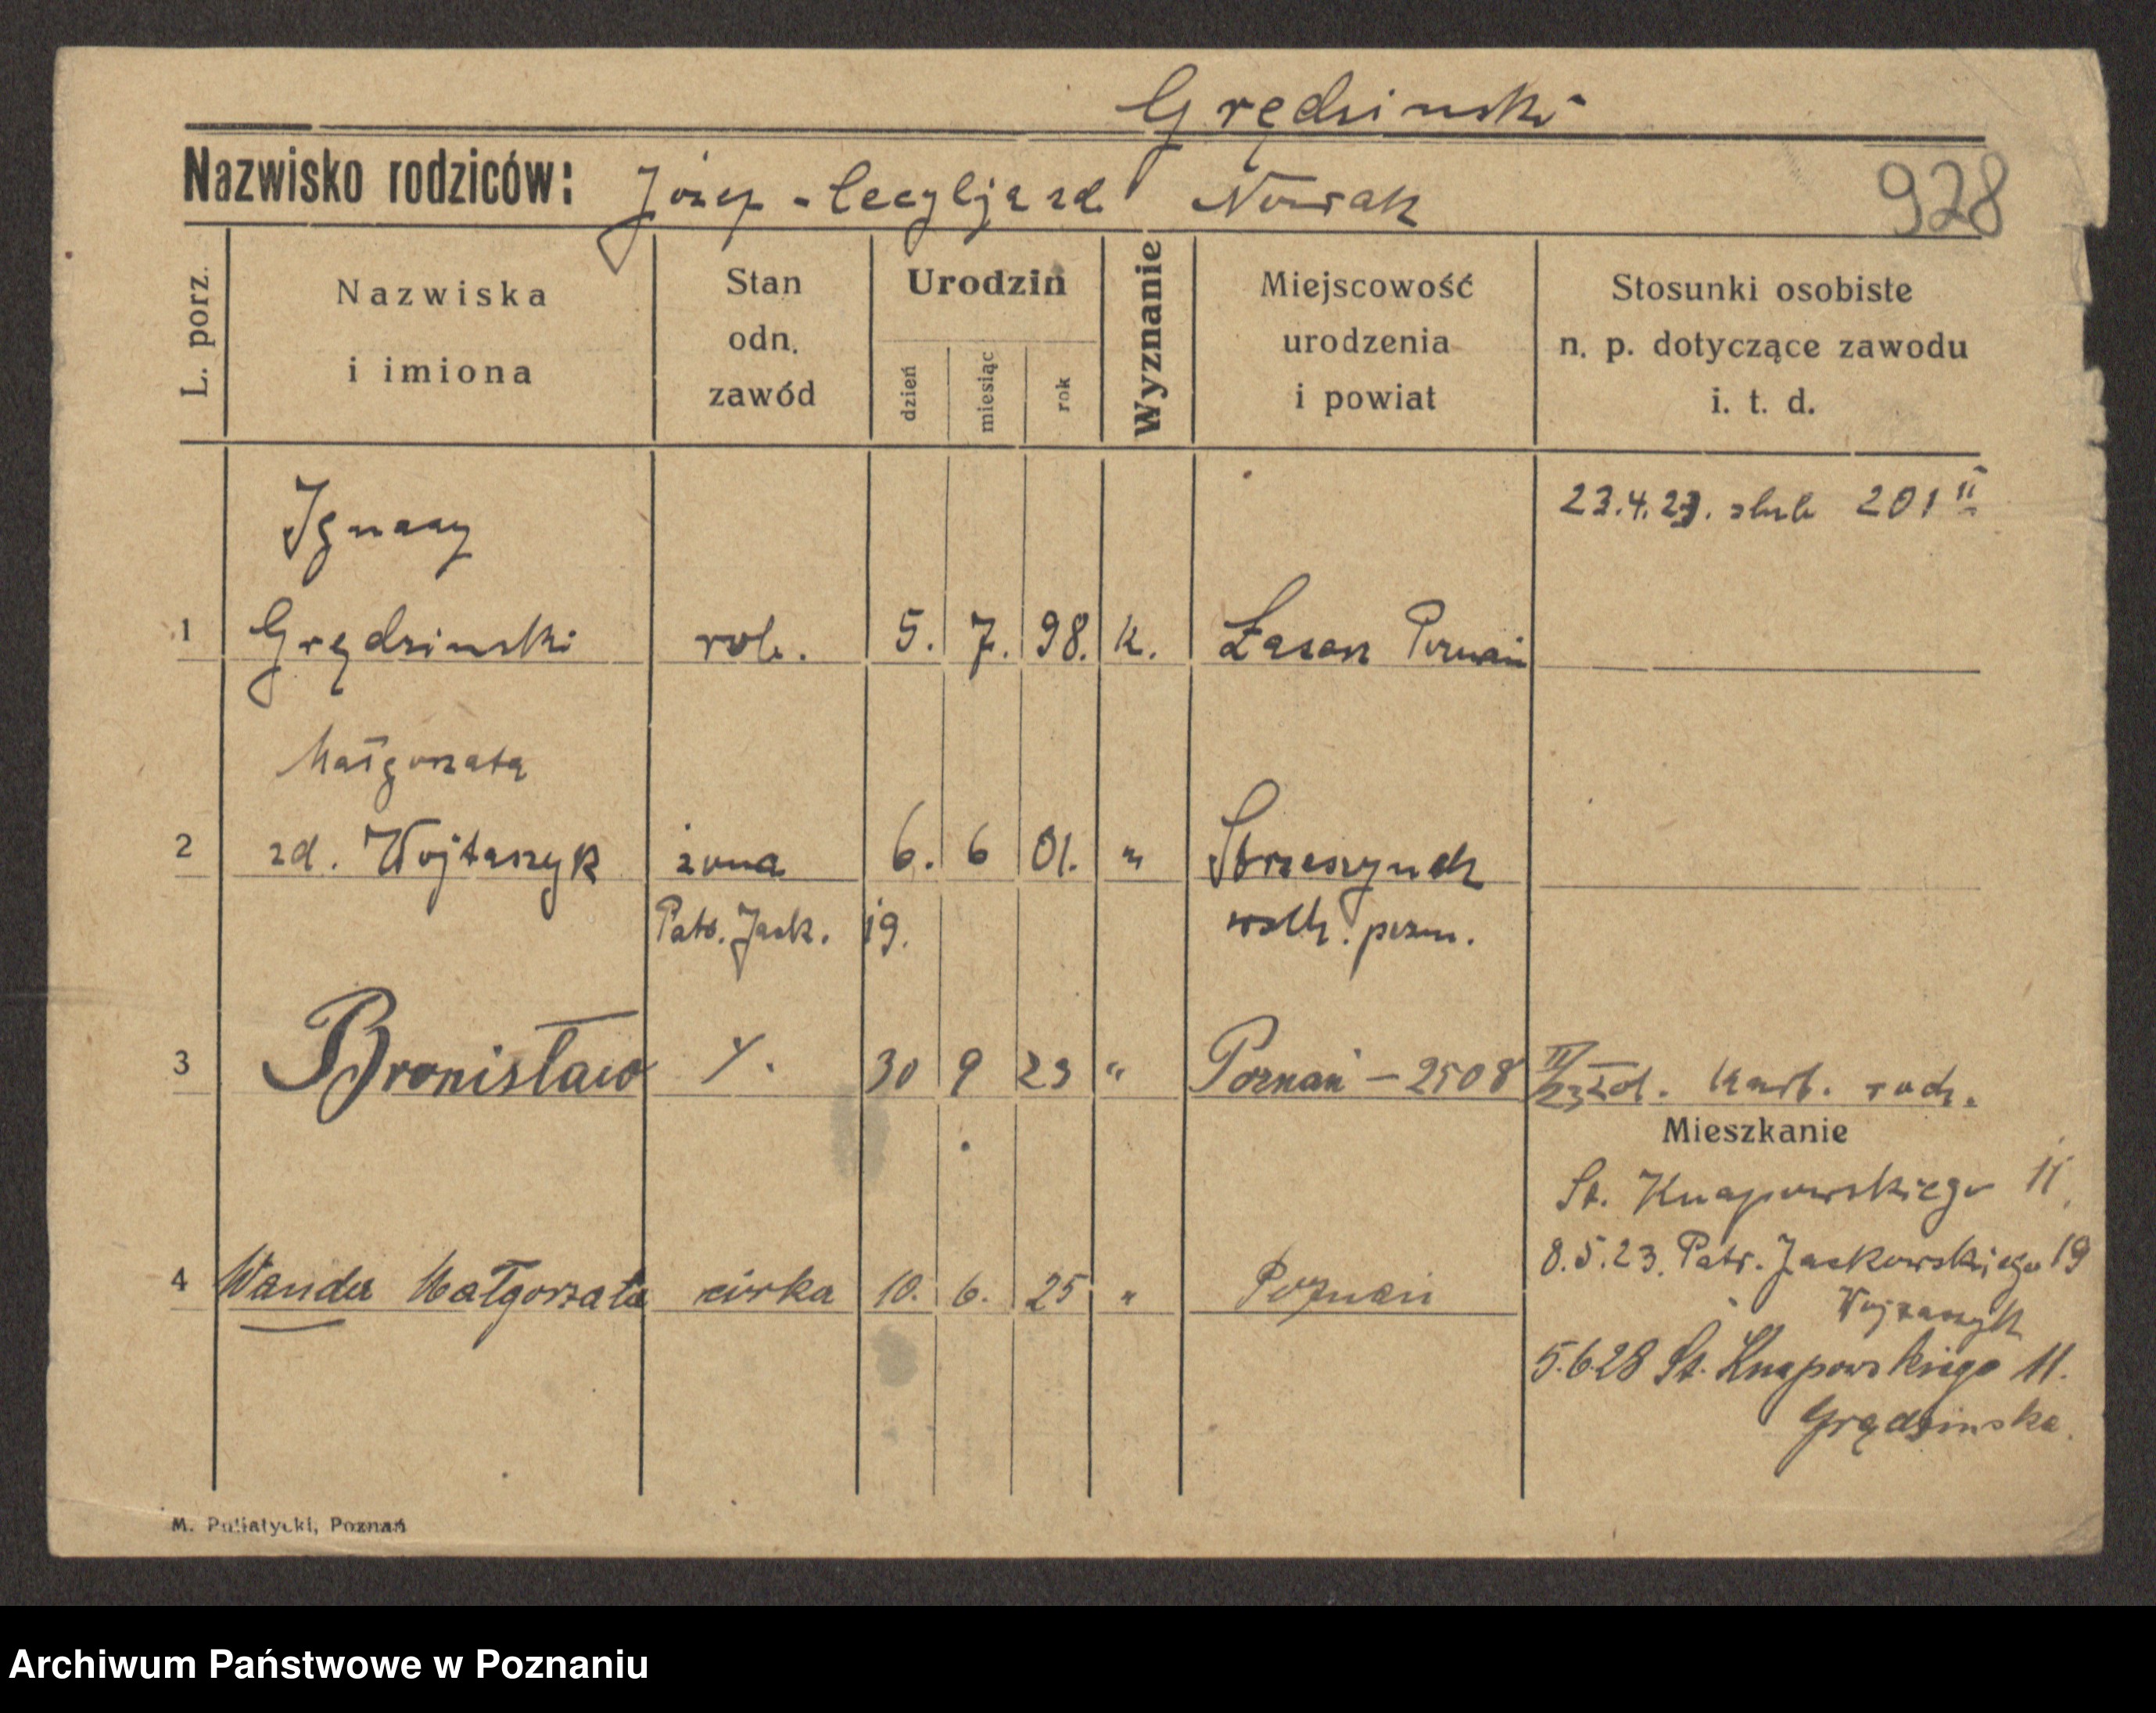 Grędzinski
Nazwisko rodziców: Józef - Cecylja zd. Nowak
928
L. porz.
Nazwiska
i imiona
Stan
odn.
zawód
Urodzin
dzień
miesiąc
rok
Wyznanie
Miejscowość
urodzenia
i powiat
Stosunki osobiste
n. p. dotyczące zawodu
i. t. d.
23.4.23. ślub 201 II
Ignacy
1 Grędzinski rob. 5. 7. 98. k. Łasen Poznań
Małgorzata
2 zd. Wojtaszyk żona 6. 6 01. " Strzeszynek
Patr. Jack. 19. wsch. pozn.
3 Bronisław 30 9 23 " Poznań - 2508 III/23
Mieszkanie
St. Knapowskiego 11.
8.5.23. Patr. Jackowskiego 19
Wojtaszyk
4 Wanda Małgorzata córka 10. 6. 25 " Poznań
5.6.28 St. Knapowskiego 11.
Grądzinska.
M. Puliatycki, Poznań
Archiwum Państwowe w Poznaniu